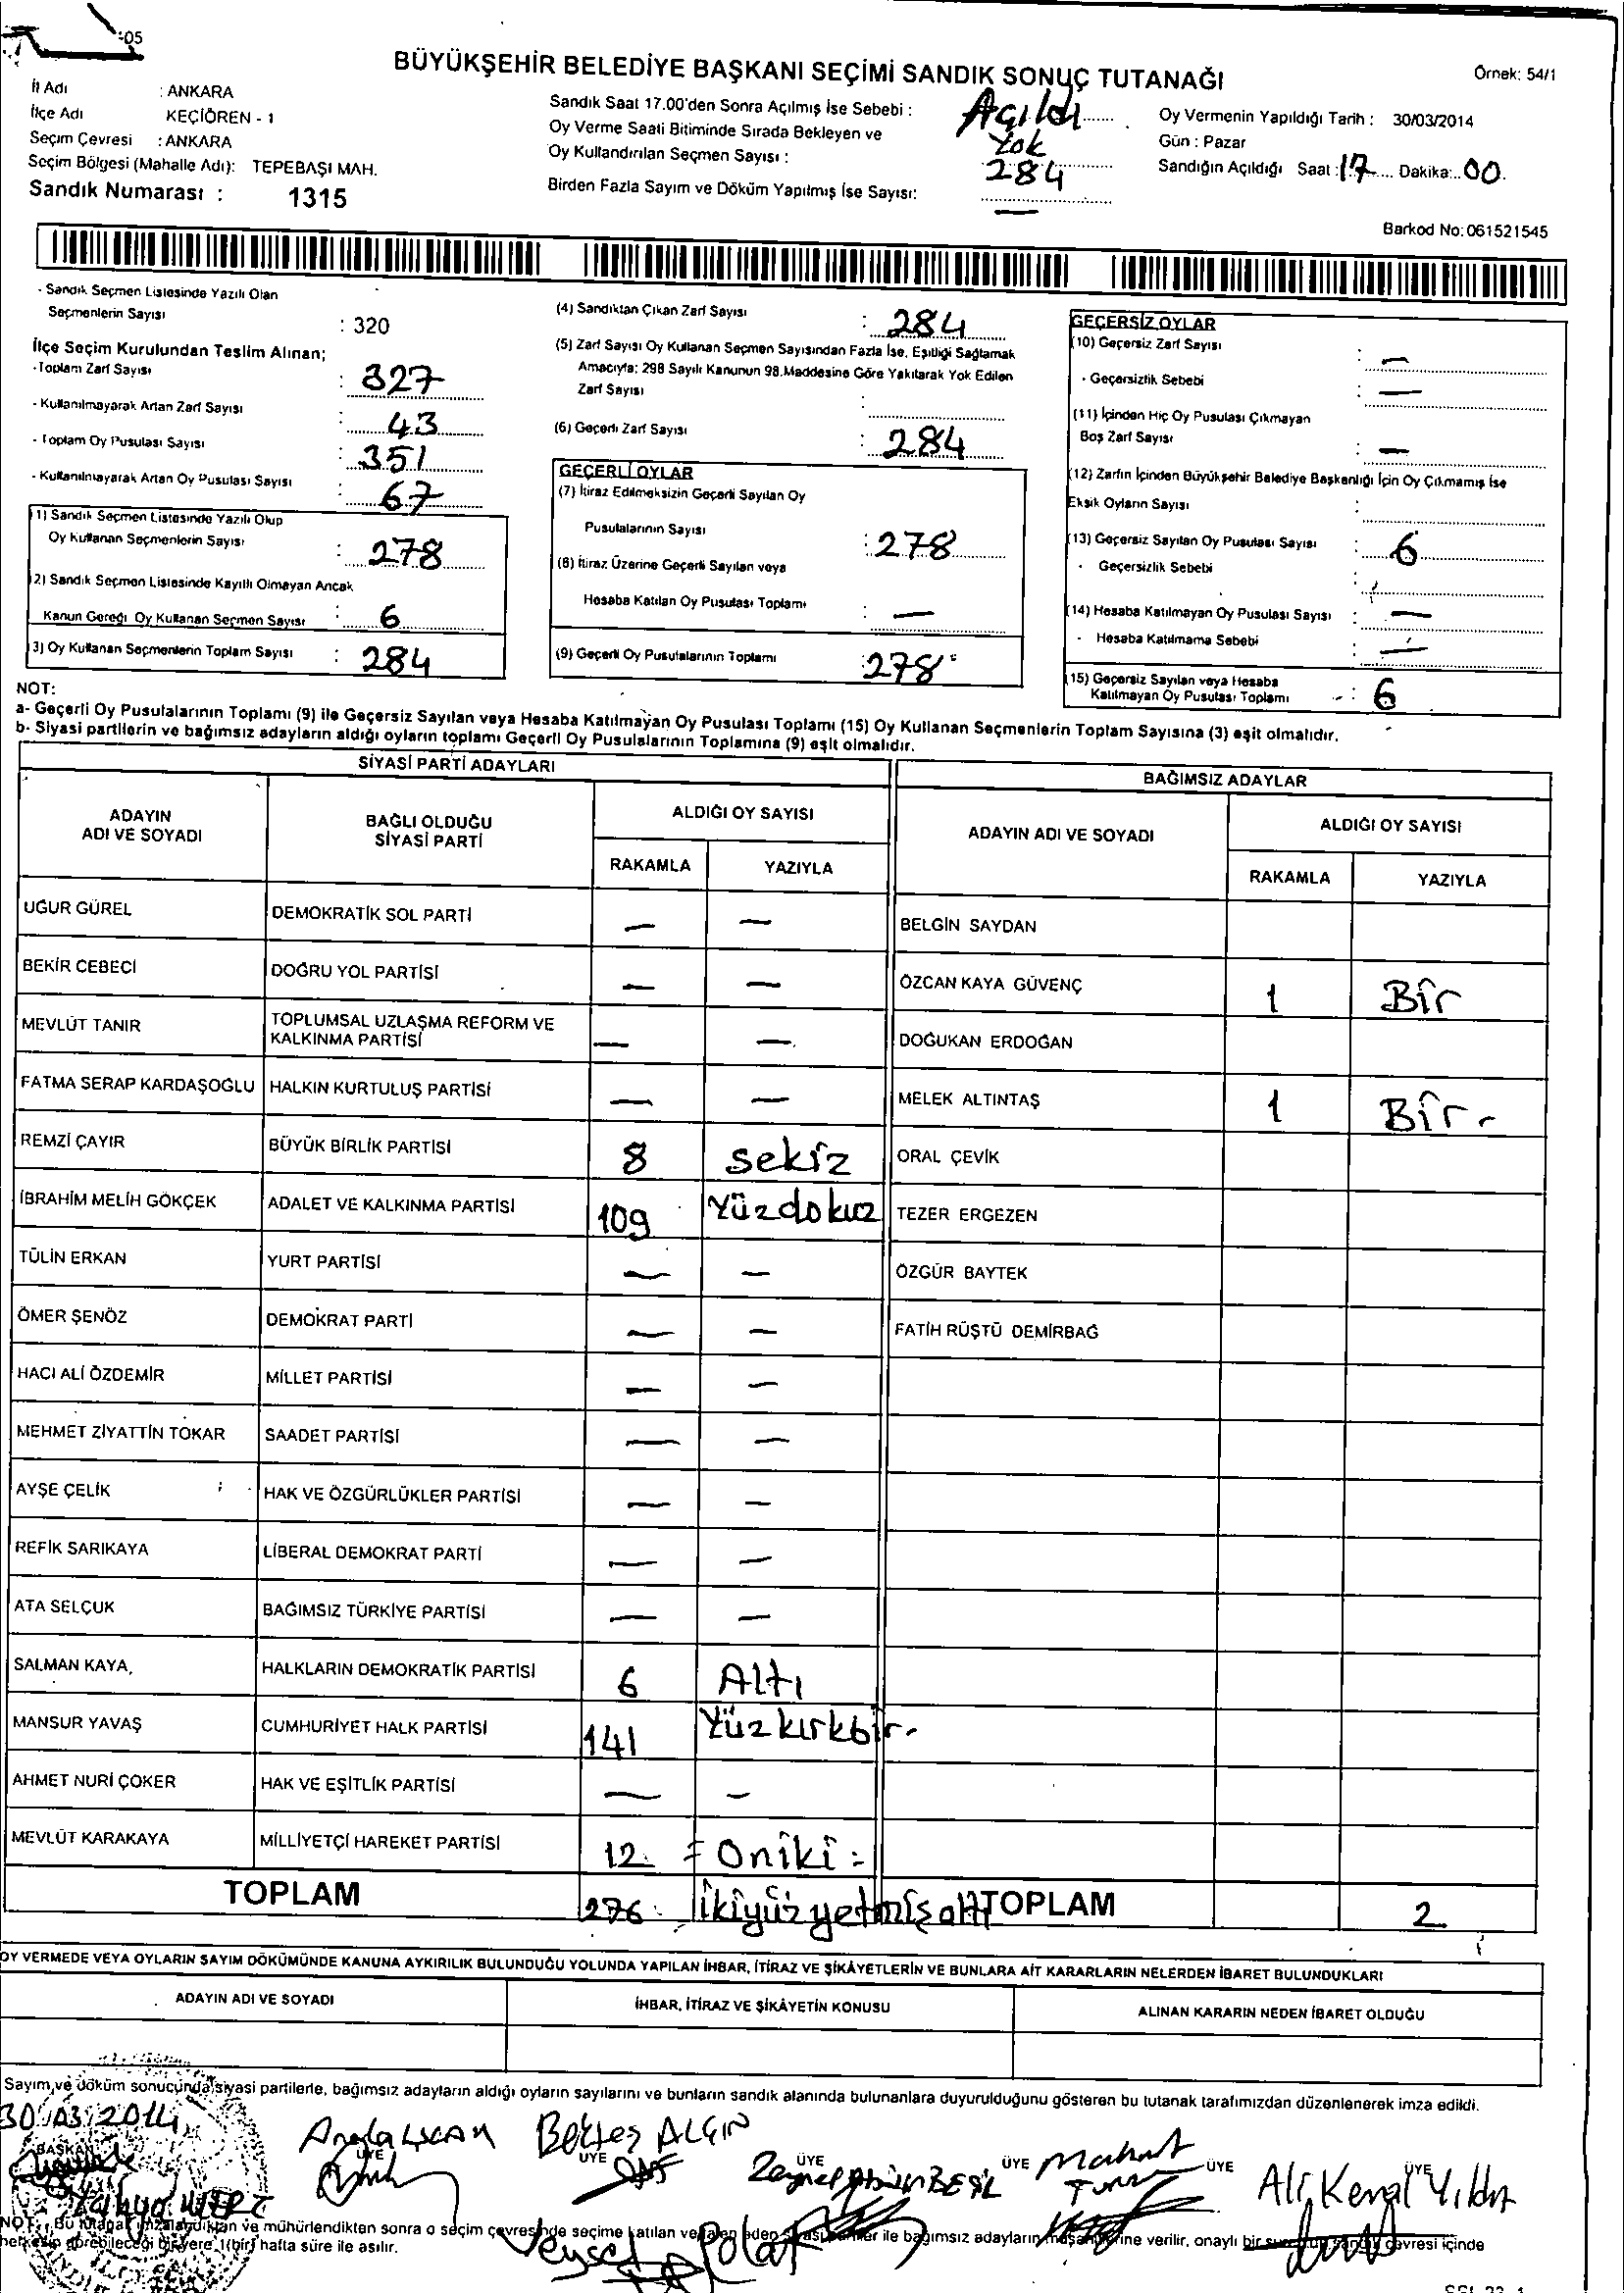 :05
BÜYÜKŞEHİR BELEDİYE BAŞKANI SEÇİMİ SANDIK SONUÇ TUTANAĞI
Örnek: 54/1
İl Adı : ANKARA
İlçe Adı KEÇİÖREN - 1
Seçim Çevresi : ANKARA
Seçim Bölgesi (Mahalle Adı): TEPEBAŞI MAH.
Sandık Numarası : 1315
Sandık Saat 17.00'den Sonra Açılmış İse Sebebi : Açıldı
Oy Verme Saati Bitiminde Sırada Bekleyen ve Yok
Oy Kullandırılan Seçmen Sayısı : 284
Birden Fazla Sayım ve Döküm Yapılmış İse Sayısı: —
Oy Vermenin Yapıldığı Tarih : 30/03/2014
Gün : Pazar
Sandığın Açıldığı Saat : 17 Dakika:.. 00.
Barkod No: 061521545
- Sandık Seçmen Listesinde Yazılı Olan
Seçmenlerin Sayısı : 320
İlçe Seçim Kurulundan Teslim Alınan;
-Toplam Zarf Sayısı : 327
- Kullanılmayarak Artan Zarf Sayısı : 43
- Toplam Oy Pusulası Sayısı : 351
- Kullanılmayarak Artan Oy Pusulası Sayısı : 67
(1) Sandık Seçmen Listesinde Yazılı Olup
Oy Kullanan Seçmenlerin Sayısı : 278
(2) Sandık Seçmen Listesinde Kayıtlı Olmayan Ancak
Kanun Gereği Oy Kullanan Seçmen Sayısı : 6
(3) Oy Kullanan Seçmenlerin Toplam Sayısı : 284
(4) Sandıktan Çıkan Zarf Sayısı : 284
(5) Zarf Sayısı Oy Kullanan Seçmen Sayısından Fazla İse, Eşitliği Sağlamak
Amacıyla; 298 Sayılı Kanunun 98.Maddesine Göre Yakılarak Yok Edilen
Zarf Sayısı :
(6) Geçerli Zarf Sayısı : 284
GEÇERLİ OYLAR
(7) İtiraz Edilmeksizin Geçerli Sayılan Oy
Pusulalarının Sayısı : 278
(8) İtiraz Üzerine Geçerli Sayılan veya
Hesaba Katılan Oy Pusulası Toplamı : —
(9) Geçerli Oy Pusulalarının Toplamı : 278
GEÇERSİZ OYLAR
(10) Geçersiz Zarf Sayısı : —
- Geçersizlik Sebebi : —
(11) İçinden Hiç Oy Pusulası Çıkmayan
Boş Zarf Sayısı : —
(12) Zarfın İçinden Büyükşehir Belediye Başkanlığı İçin Oy Çıkmamış İse
Eksik Oyların Sayısı :
(13) Geçersiz Sayılan Oy Pusulası Sayısı : 6
- Geçersizlik Sebebi :
(14) Hesaba Katılmayan Oy Pusulası Sayısı : —
- Hesaba Katılmama Sebebi : —
(15) Geçersiz Sayılan veya Hesaba
Katılmayan Oy Pusulası Toplamı : 6
NOT:
a- Geçerli Oy Pusulalarının Toplamı (9) ile Geçersiz Sayılan veya Hesaba Katılmayan Oy Pusulası Toplamı (15) Oy Kullanan Seçmenlerin Toplam Sayısına (3) eşit olmalıdır.
b- Siyasi partilerin ve bağımsız adayların aldığı oyların toplamı Geçerli Oy Pusulalarının Toplamına (9) eşit olmalıdır.
SİYASİ PARTİ ADAYLARI BAĞIMSIZ ADAYLAR
ADAYIN ADI VE SOYADI BAĞLI OLDUĞU SİYASİ PARTİ ALDIĞI OY SAYISI ADAYIN ADI VE SOYADI ALDIĞI OY SAYISI
RAKAMLA YAZIYLA RAKAMLA YAZIYLA
UĞUR GÜREL DEMOKRATİK SOL PARTİ — — BELGİN SAYDAN
BEKİR CEBECİ DOĞRU YOL PARTİSİ — — ÖZCAN KAYA GÜVENÇ 1 Bir
MEVLÜT TANIR TOPLUMSAL UZLAŞMA REFORM VE KALKINMA PARTİSİ — — DOĞUKAN ERDOĞAN
FATMA SERAP KARDAŞOĞLU HALKIN KURTULUŞ PARTİSİ — — MELEK ALTINTAŞ 1 Bir-
REMZİ ÇAYIR BÜYÜK BİRLİK PARTİSİ 8 sekiz ORAL ÇEVİK
İBRAHİM MELİH GÖKÇEK ADALET VE KALKINMA PARTİSİ 109 Yüzdokuz TEZER ERGEZEN
TÜLİN ERKAN YURT PARTİSİ — — ÖZGÜR BAYTEK
ÖMER ŞENÖZ DEMOKRAT PARTİ — — FATİH RÜŞTÜ DEMİRBAĞ
HACI ALİ ÖZDEMİR MİLLET PARTİSİ — —
MEHMET ZİYATTİN TOKAR SAADET PARTİSİ — —
AYŞE ÇELİK HAK VE ÖZGÜRLÜKLER PARTİSİ — —
REFİK SARIKAYA LİBERAL DEMOKRAT PARTİ — —
ATA SELÇUK BAĞIMSIZ TÜRKİYE PARTİSİ — —
SALMAN KAYA, HALKLARIN DEMOKRATİK PARTİSİ 6 Altı
MANSUR YAVAŞ CUMHURİYET HALK PARTİSİ 141 Yüzkırkbir-
AHMET NURİ ÇOKER HAK VE EŞİTLİK PARTİSİ — —
MEVLÜT KARAKAYA MİLLİYETÇİ HAREKET PARTİSİ 12. = Oniki =
TOPLAM 276 ikiyüzyetmişaltı TOPLAM 2
OY VERMEDE VEYA OYLARIN SAYIM DÖKÜMÜNDE KANUNA AYKIRILIK BULUNDUĞU YOLUNDA YAPILAN İHBAR, İTİRAZ VE ŞİKÂYETLERİN VE BUNLARA AİT KARARLARIN NELERDEN İBARET BULUNDUKLARI
ADAYIN ADI VE SOYADI İHBAR, İTİRAZ VE ŞİKÂYETİN KONUSU ALINAN KARARIN NEDEN İBARET OLDUĞU
Sayım ve döküm sonucunda siyasi partilerle, bağımsız adayların aldığı oyların sayılarını ve bunların sandık alanında bulunanlara duyurulduğunu gösteren bu tutanak tarafımızdan düzenlenerek imza edildi.
30.03.2014
BAŞKAN ÜYE ÜYE ÜYE ÜYE ÜYE ÜYE
Bektaş ALÇIN
Mahmut
Ali Kemal Yıldız
Veysel Polat
NOT: Bu tutanak imzalandıktan ve mühürlendikten sonra o seçim çevresinde seçime katılan ve talep eden siyasi partiler ile bağımsız adayların müşahitlerine verilir, onaylı bir sureti sandık çevresi içinde
herkesin görebileceği bir yere 1(bir) hafta süre ile asılır.